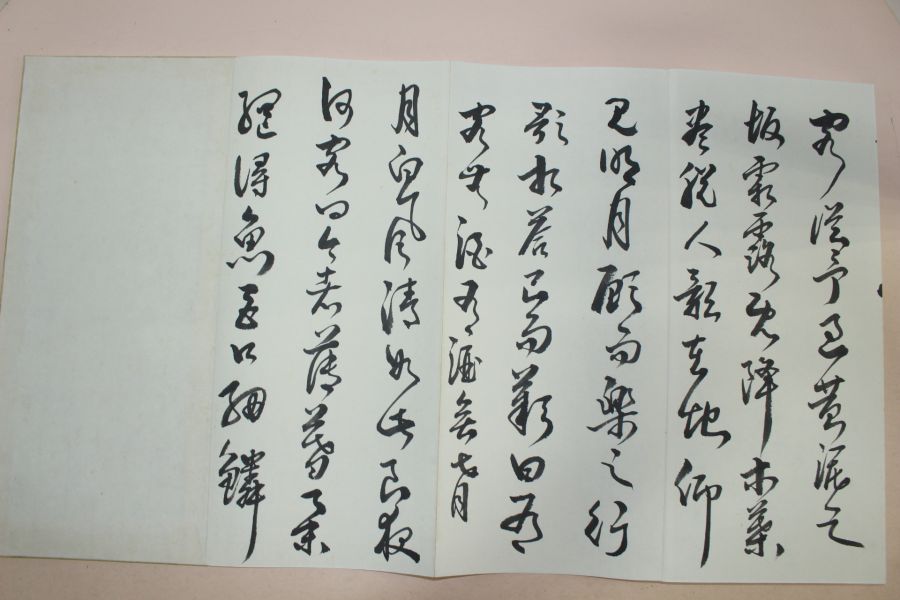 客從予過黃泥之
坂霜露既降木葉
盡脫人影在地仰
見明月顧而樂之行
歌相荅已而歎曰有
客無酒有酒無肴
月白風清如此良夜
何客曰今者薄暮舉
網得魚巨口細鱗